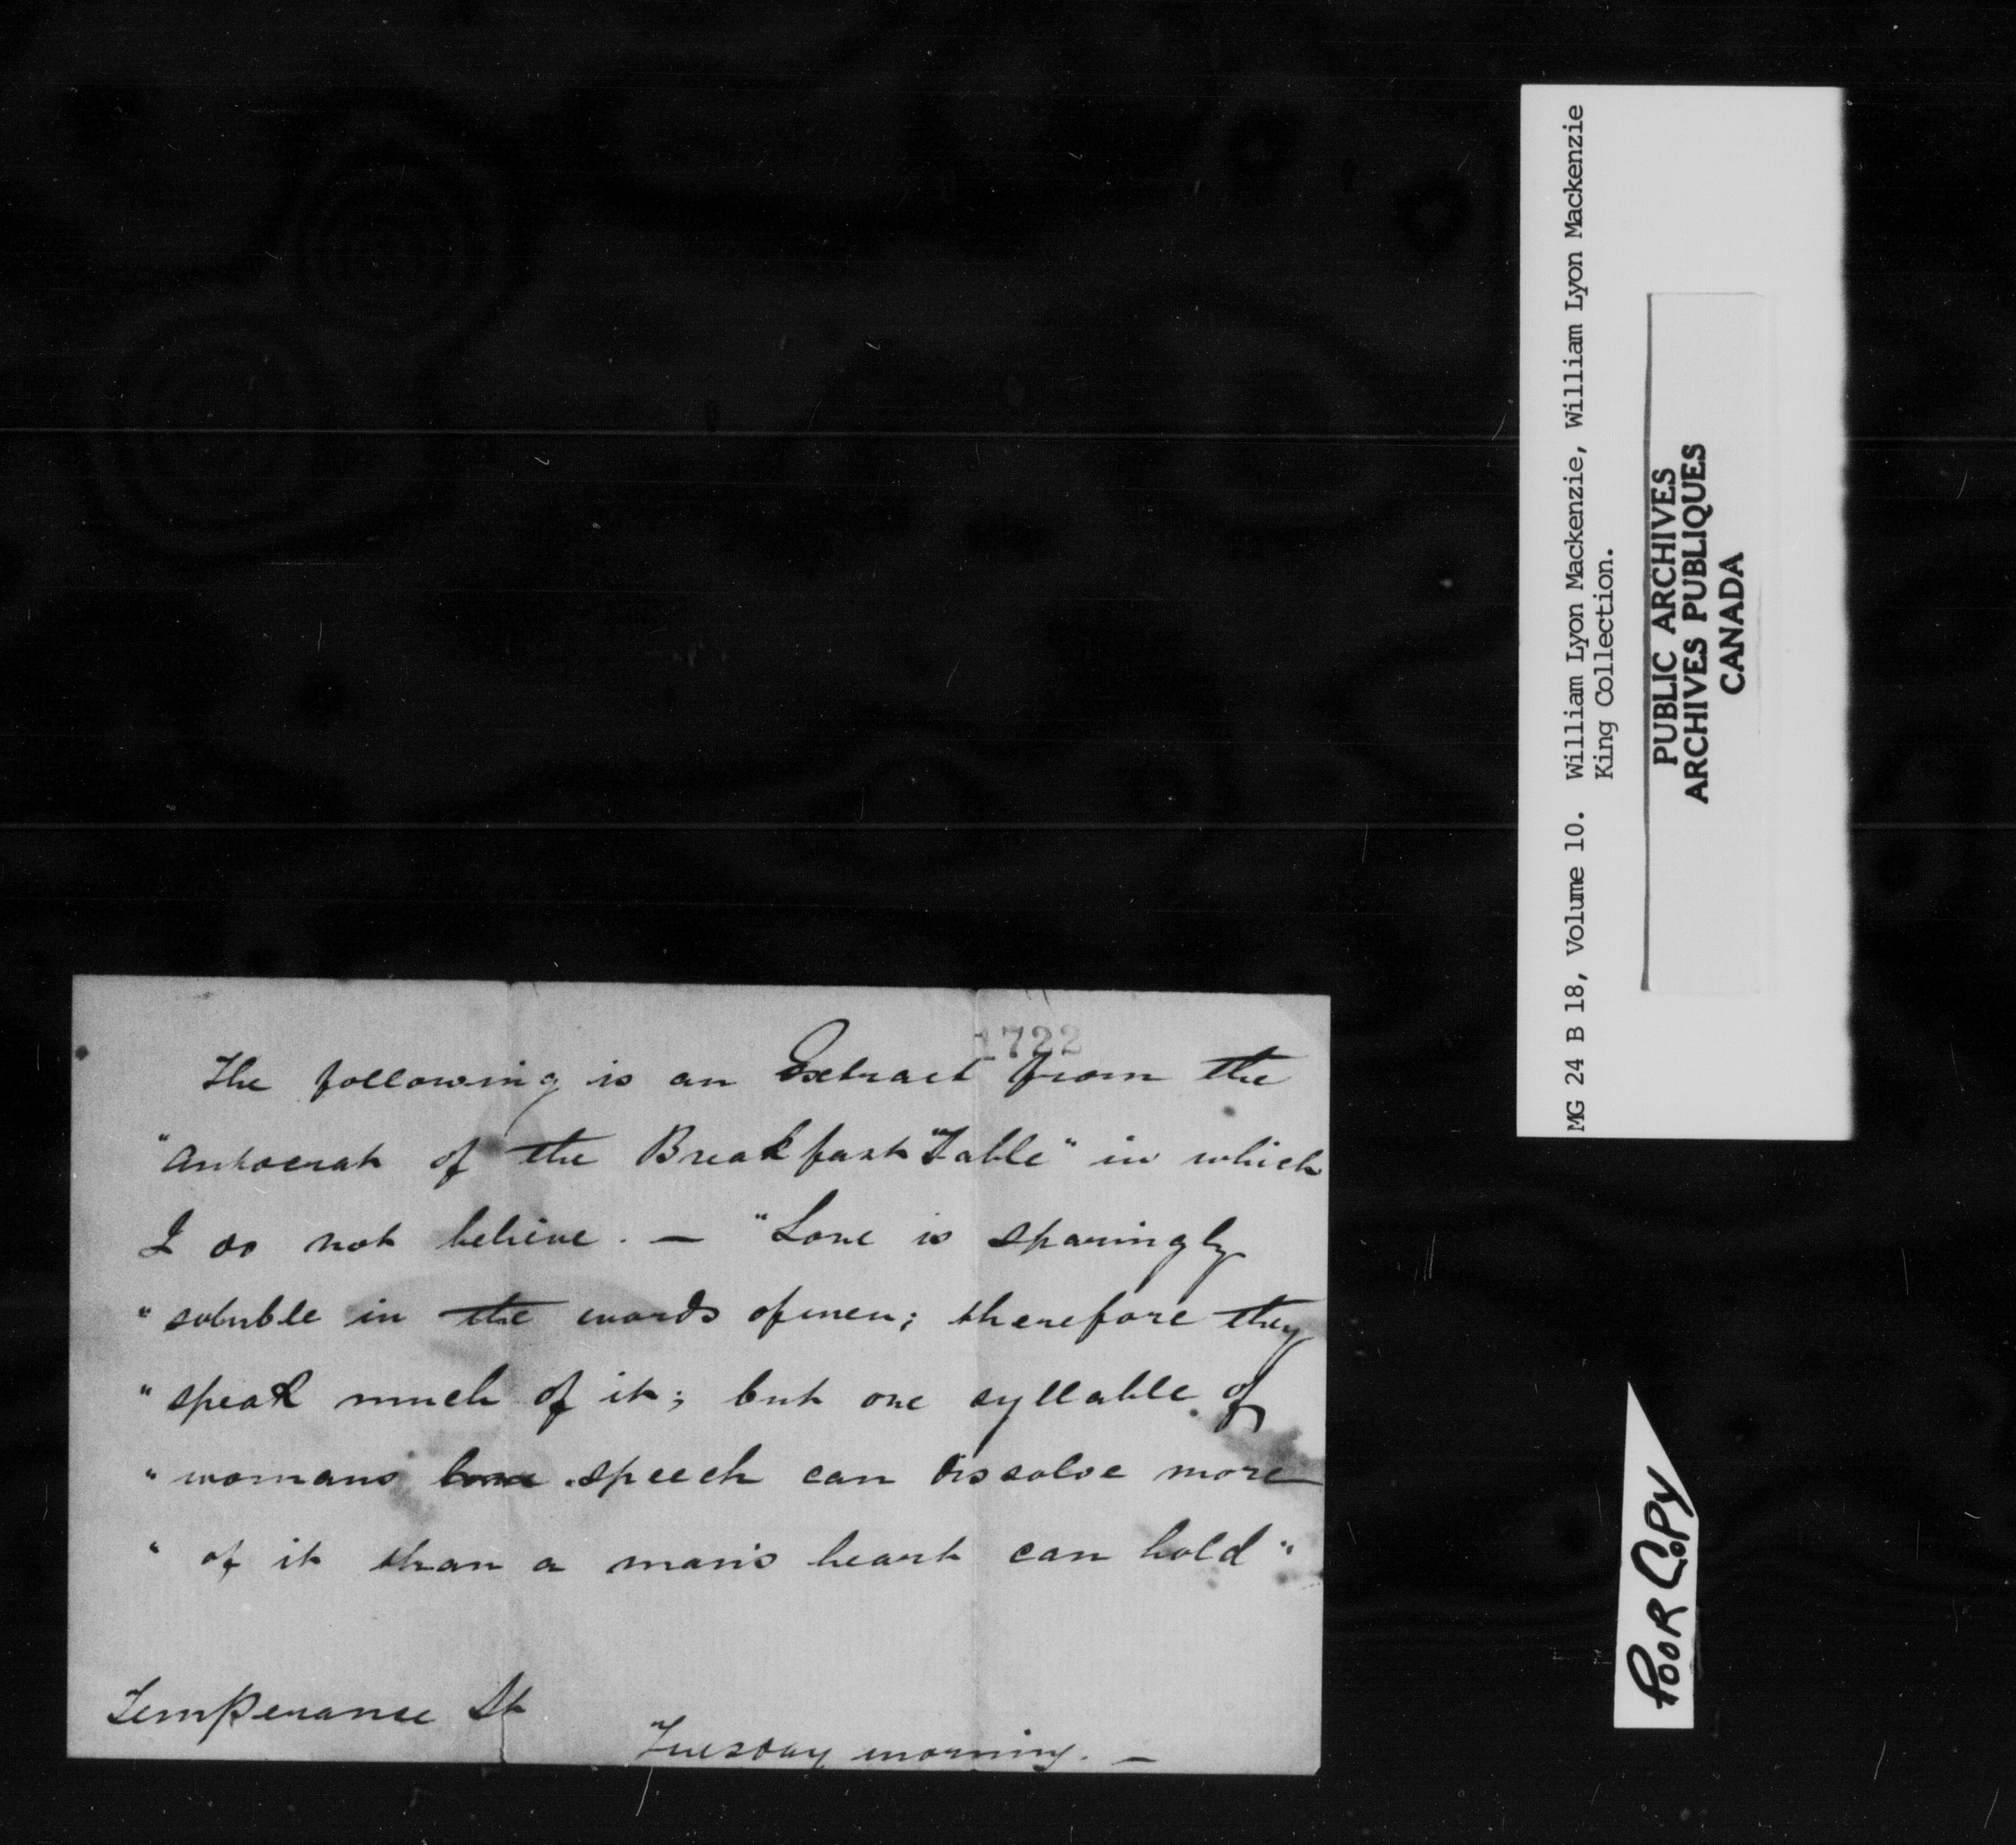 1722
The following is an Extract from the
"Autocrat of the Breakfast "Table" in which
I do not believe. — "Love is sparingly
"soluble in the words of men; therefore they
"speak much of it; but one syllable of
"womans love speech can dissolve more
"of it than a man's heart can hold"
Temperance St
Tuesday morning. —
MG 24 B 18, Volume 10. William Lyon Mackenzie, William Lyon Mackenzie
King Collection.
PUBLIC ARCHIVES
ARCHIVES PUBLIQUES
CANADA
POOR COPY